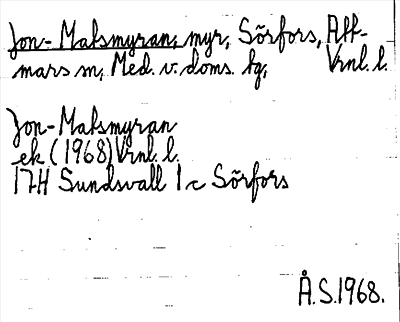 Jon-Maksmyran, myr, Sörfors, Att-
mars sn, Med. v. doms. hg, Vrnl. l.
Jon-Maksmyran
ek (1968) Vrnl. l.
17H Sundsvall 1 c Sörfors
Å.S. 1968.